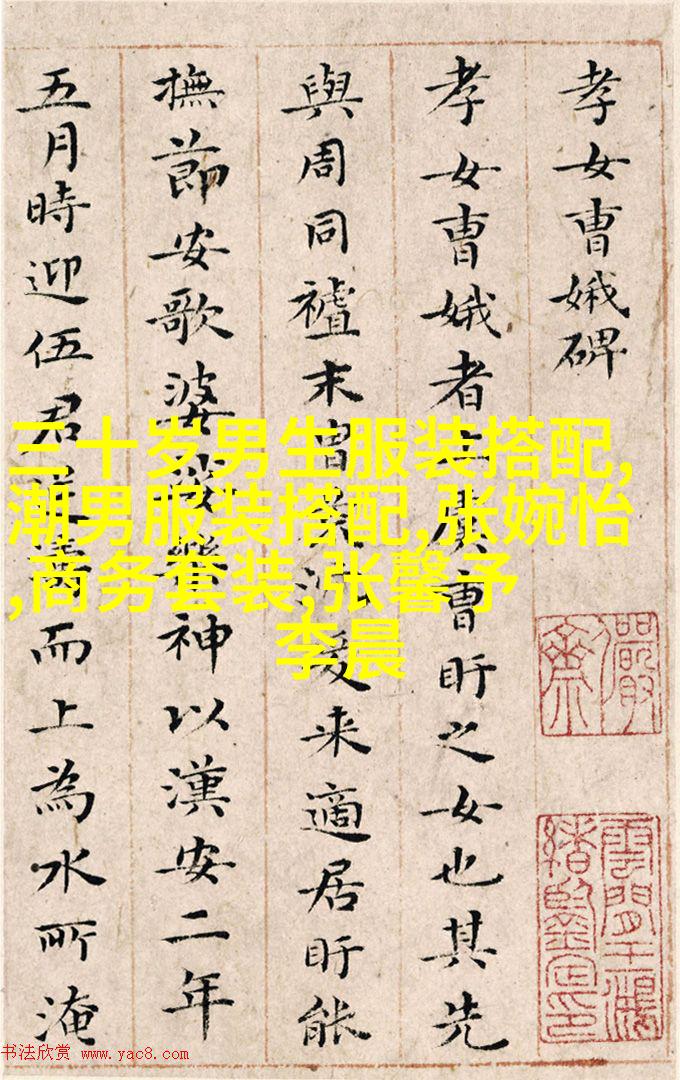 孝女曹娥碑
孝女曹娥者上虞曹盱之女也其先
與周同禮末胄景沉爰来適居盱能
撫節安歌婆娑樂神以漢安二年
五月時迎伍君逆濤而上為水所淹
三十岁男生服装搭配,
潮男服装搭配,张婉怡
,商务套装,张馨予
李晨
嚴
齋
书法欣赏 www.yac8.com